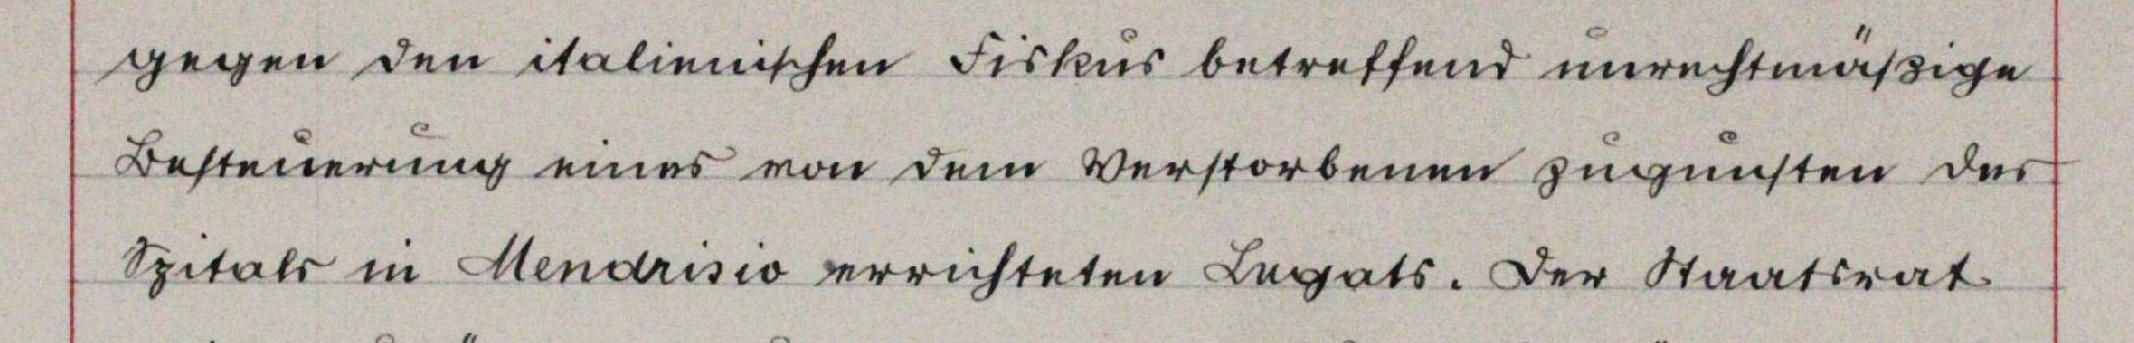 gegen den italienischen Fiskus betreffend unrechtmäßige
Besteuerung eines von dem Verstorbenen zugunsten des
Spitals in Mendrisio errichteten Legats. Der Staatsrat